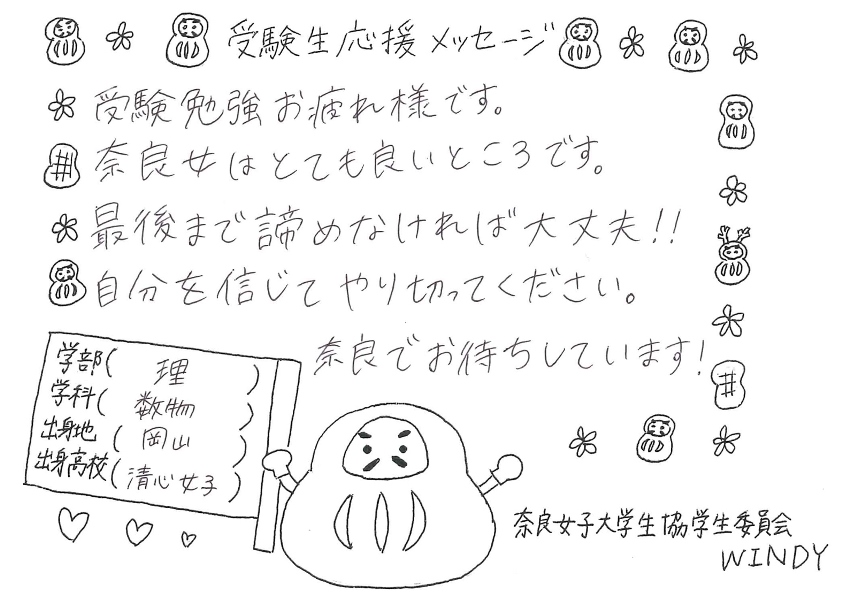 受験生応援メッセージ
受験勉強お疲れ様です。
奈良女はとても良いところです。
最後まで諦めなければ大丈夫!!
自分を信じてやり切ってください。
奈良でお待ちしています!
学部( 理 )
学科( 数物 )
出身地( 岡山 )
出身高校( 清心女子 )
奈良女子大学生協学生委員会
WINDY